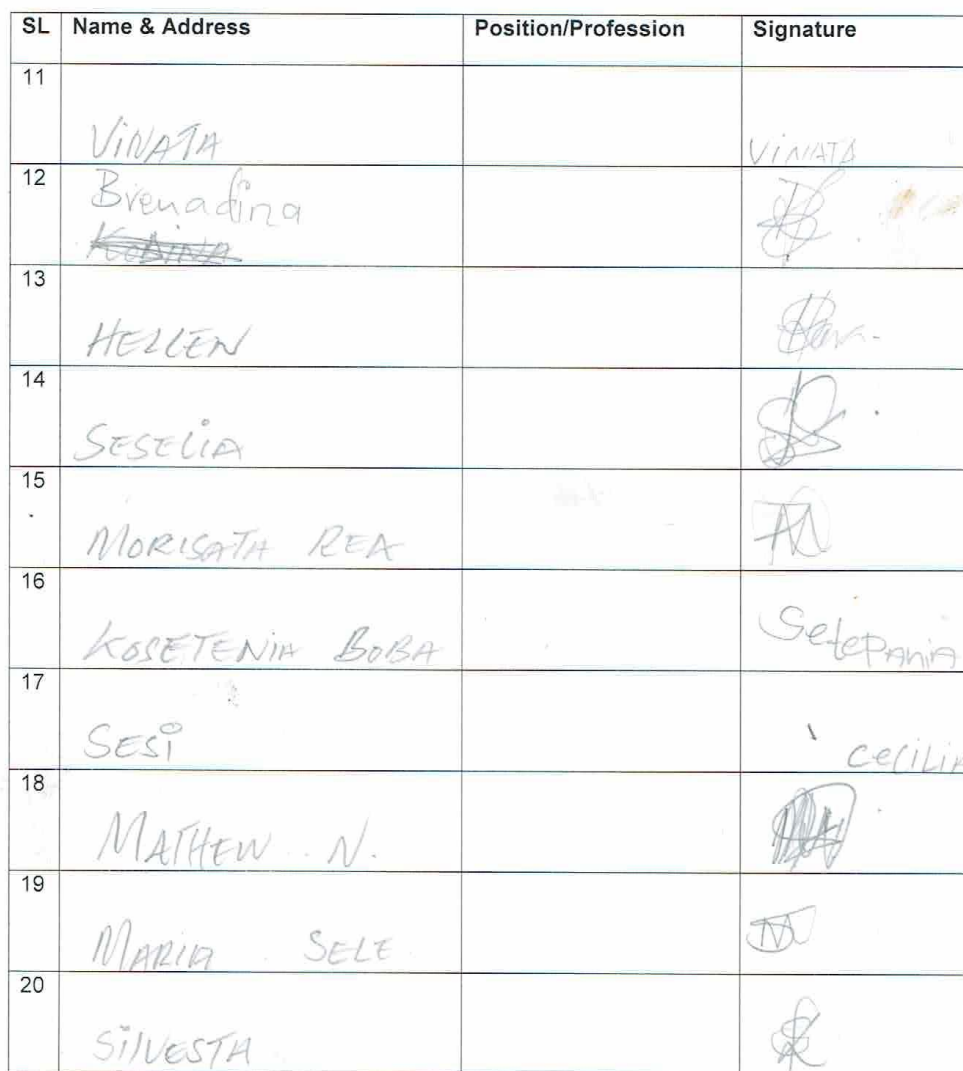 SL Name & Address Position/Profession Signature
11
VINATA VINATA
12 Brenadina
13
HELLEN
14
SESELIA
15
MORISATA REA
16
KOSETENIA BOBA Setepania
17
SESI CECILIA
18
MATHEW N.
19
MARIA SELE
20
SILVESTA